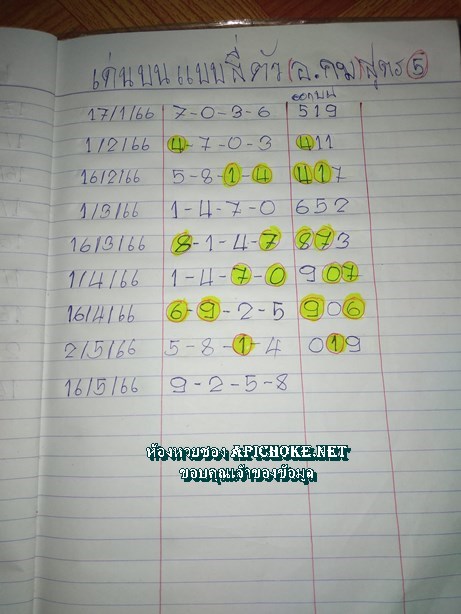 เด่นบนแบบสี่ตัว (อ.คม) สูตร 5
ออกบน
17/1/66 7-0-3-6 519
1/2/66 4-7-0-3 411
16/2/66 5-8-1-4 417
1/3/66 1-4-7-0 652
16/3/66 8-1-4-7 873
1/4/66 1-4-7-0 907
16/4/66 6-9-2-5 906
2/5/66 5-8-1-4 019
16/5/66 9-2-5-8
ห้องหวยซอง APICHOKE.NET
ขอบคุณเจ้าของข้อมูล